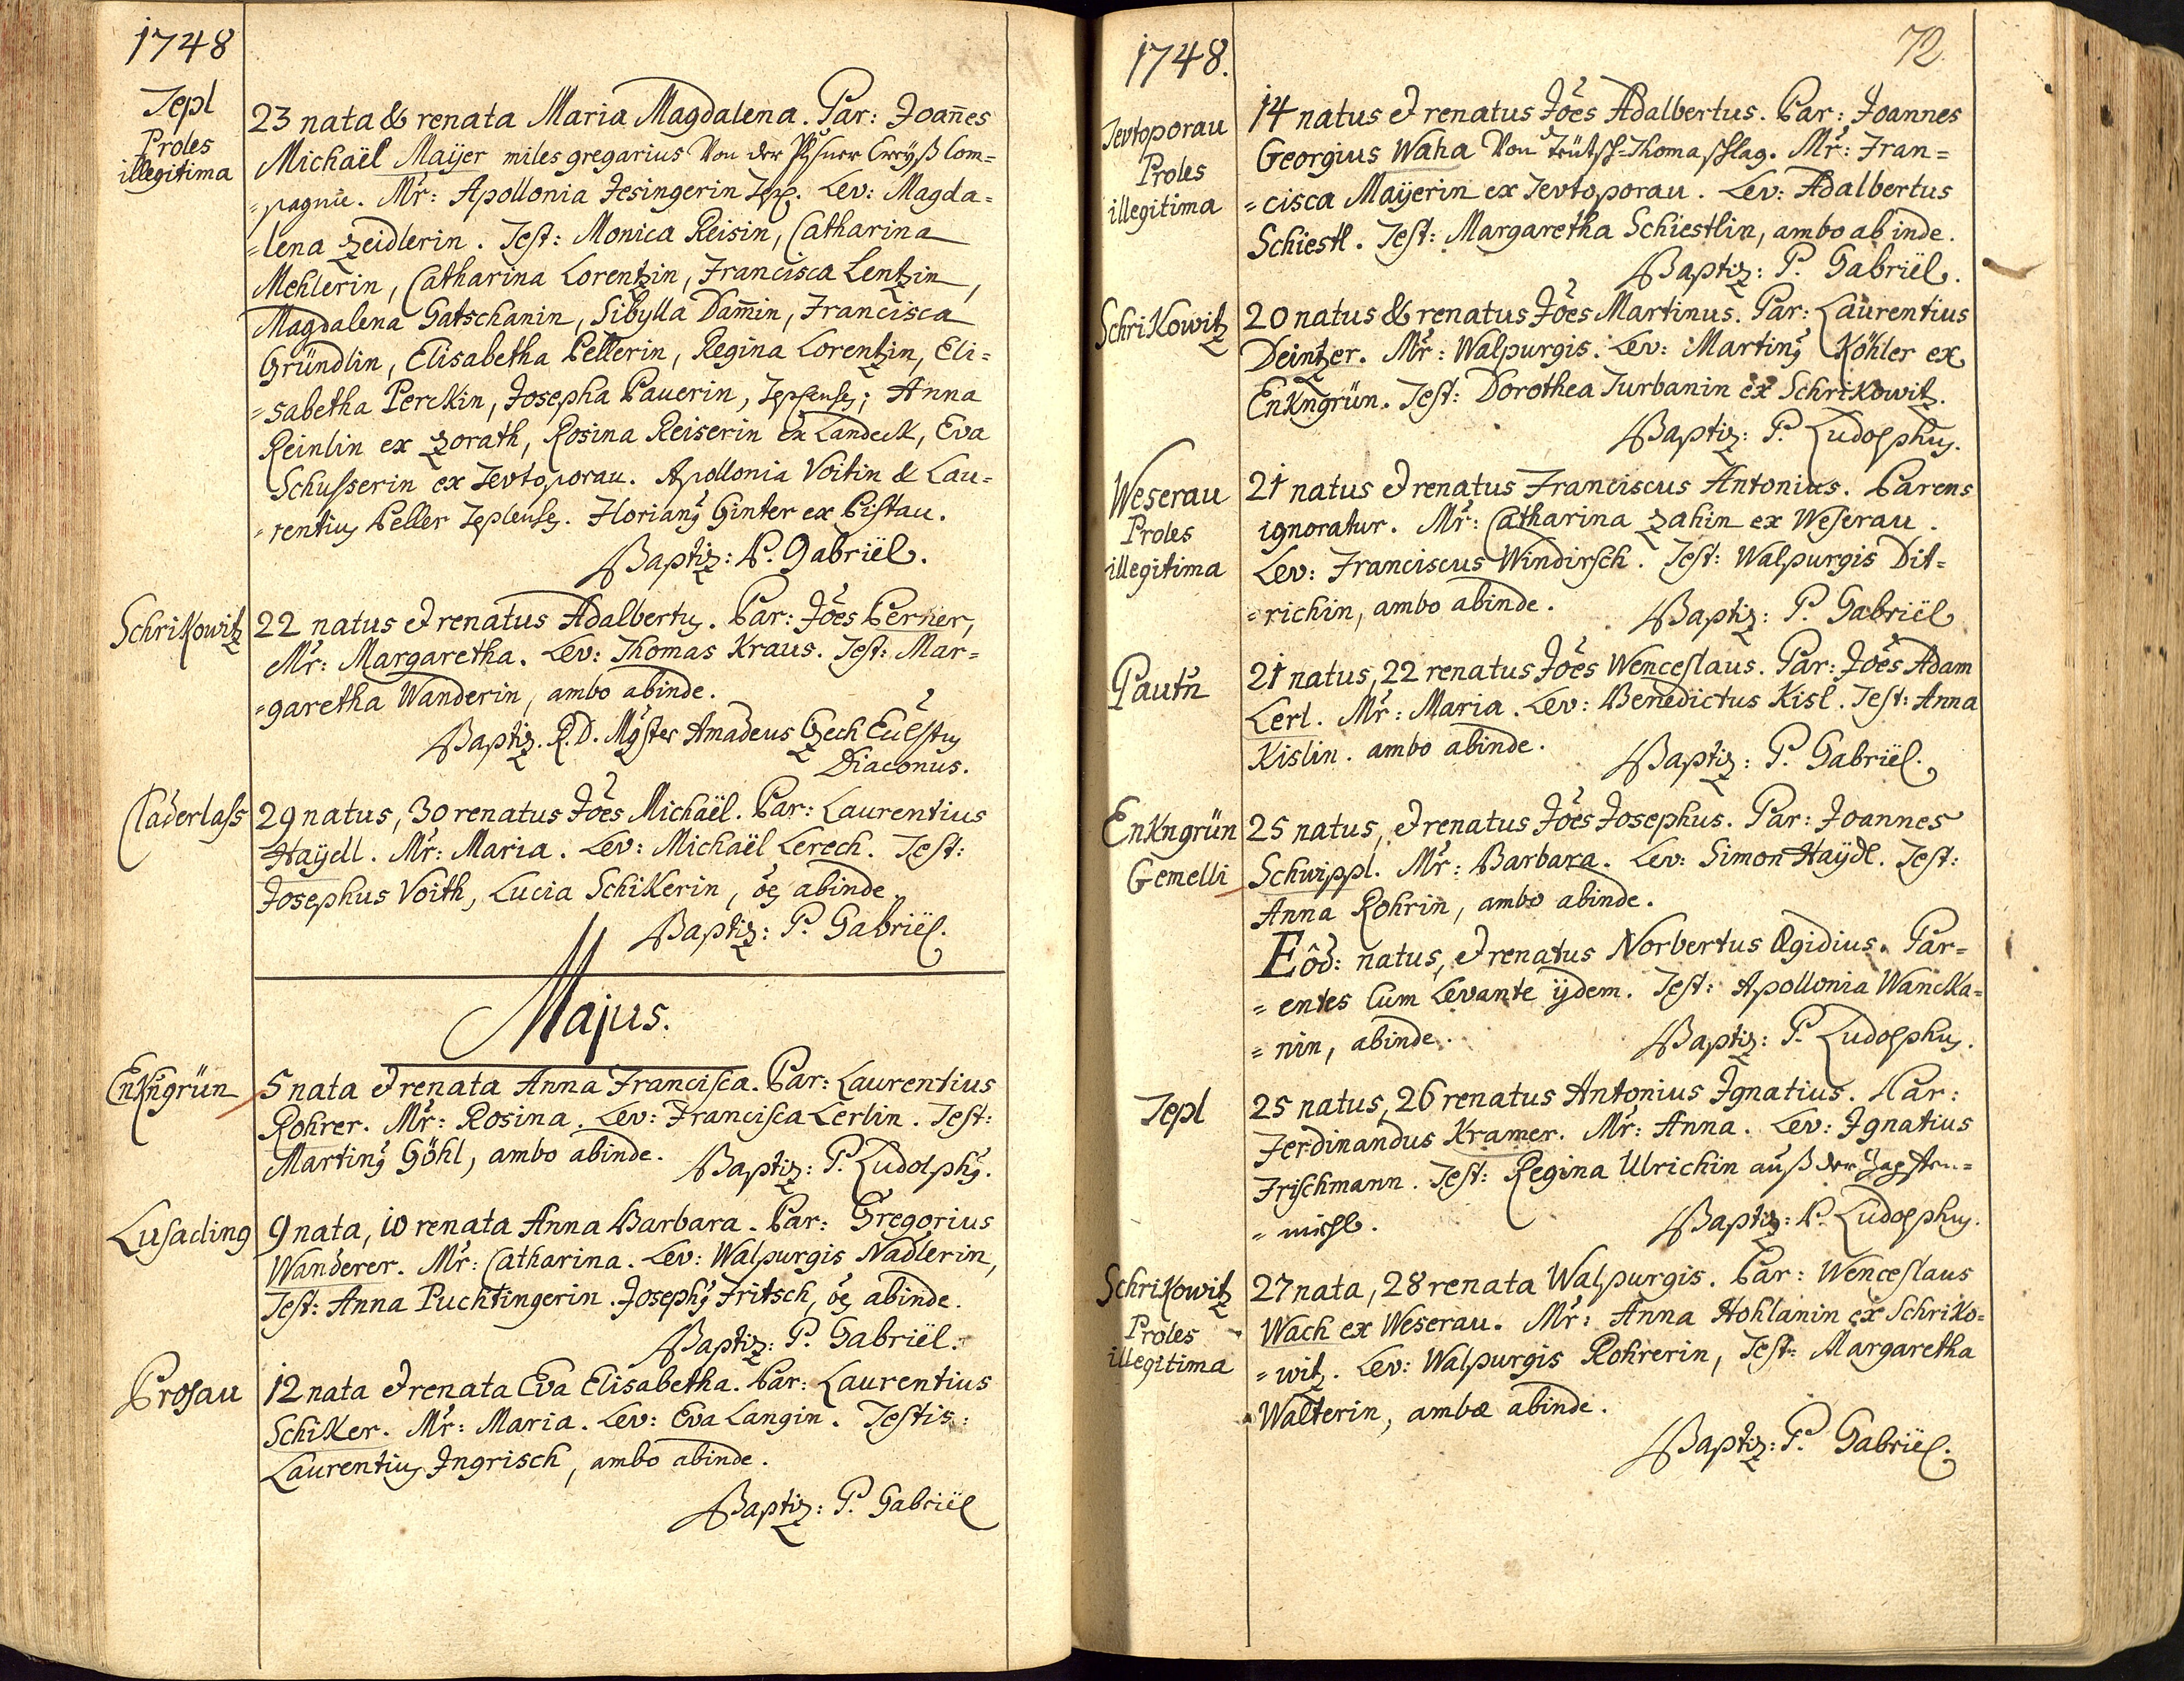 1748
Tepl
Proles
illegitima
23 nata & renata Maria Magdalena. Par: Joañes
Michaël Maÿer miles gregarius Von der Pilsner Creÿß Com=
=pagnie. Mr̃: Apollonia Fesingerin Tepl. Lev: Magda=
=lena Zeidlerin. Test: Monica Reisin, Catharina
Mehlerin, Catharina Lorentzin, Francisca Lentzin,
Magdalena Gatschanin, Sibylla Dam̃in, Francisca
Gründlin, Elisabetha Pellerin, Regina Lorentzin, Eli=
=sabetha Perckin, Josepha Pauerin, Teplenses; Anna
Reinlin ex Zorath, Rosina Reiserin ex Landeck, Eva
Schusserin ex Tevtoporau. Apollonia Voitin & Lau=
=rentius Peller Teplenses. Floriang Ginter ex Pistau.
Baptiz: P. Gabriël.
Schrikowitz
22 natus et renatus Adalbertus. Par: Jões Perner,
Mr̃: Margaretha. Lev: Thomas Kraus. Test: Mar=
=garetha Wanderin, ambo abinde.
Baptiz. R. D. Mgster Amadeus Czech
Diaconus.
Claderlass
29 natus, 30 renatus Jões Michaël. Par: Laurentius
Haÿdl. Mr̃: Maria. Lev: Michaël Lerech. Test:
Josephus Voith, Lucia Schikerin, oẽs abinde
Baptiz: P. Gabriël.
Majus.
Enkngrün
5 nata et renata Anna Francisca. Par: Laurentius
Rohrer. Mr̃: Rosina. Lev: Francisca Lerlin. Test:
Martinꝰ Göhl, ambo abinde. Baptiz: P. Ludolphꝰ.
Lusading
9 nata, 10 renata Anna Barbara. Par: Gregorius
Wanderer. Mr̃: Catharina. Lev: Walpurgis Nadlerin,
Test: Anna Puchtingerin. Josephꝰ Fritsch, oẽs abinde.
Baptiz: P. Gabriël.
Prosau
12 nata et renata Eva Elisabetha. Par: Laurentius
Schiker. Mr̃: Maria. Lev: Eva Langin. Testis:
Laurentius Ingrisch, ambo abinde.
Baptiz: P. Gabriël
1748.
72
Tevtoporau
Proles
illegitima
14 natus et renatus Jões Adalbertus. Par: Joannes
Georgius Waha Von Teütsch=Thomaschlag. Mr̃: Fran=
=cisca Maÿerin ex Tevtoporau. Lev: Adalbertus
Schiestl. Test: Margaretha Schiestlin, ambo ab inde.
Baptiz: P. Gabriël.
Schrikowitz
20 natus & renatus Jões Martinus. Par: Laurentius
Deintzer. Mr̃: Walpurgis. Lev: Martinꝰ Köhler ex
Enkngrün. Test: Dorothea Turbanin ex Schrikowitz.
Baptiz: P. Ludolphus.
Weserau
Proles
illegitima
21 natus et renatus Franciscus Antonius. Parens
ignoratur. Mr̃: Catharina Zahin ex Weserau.
Lev: Franciscus Windirsch. Test: Walpurgis Dit=
=richin, ambo abinde. Baptiz: P. Gabriël
Pautn
21 natus, 22 renatus Jões Wenceslaus. Par: Jões Adam
Lerl. Mr̃: Maria. Lev: Benedictus Kisl. Test: Anna
Kislin. ambo abinde. Baptiz: P. Gabriël.
Enkngrün
Gemelli
25 natus, et renatus Jões Josephus. Par: Joannes
Schwippl. Mr̃: Barbara. Lev: Simon Haÿdl. Test:
Anna Rohrin, ambo abinde.
Eôd: natus, et renatus Norbertus Ægidius. Par=
=entes Cum Levante ijdem. Test: Apollonia Wancka=
=nin, abinde. Baptiz: P. Ludolphus.
Tepl
25 natus, 26 renatus Antonius Ignatius. Par:
Ferdinandus Kramer. Mr̃: Anna. Lev: Ignatius
Frischmann. Test: Regina Ulrichin auß der
=michl. Baptiz: P. Ludolphus.
Schrikowitz
Proles
illegitima
27 nata, 28 renata Walpurgis. Par: Wenceslaus
Wach ex Weserau. Mr̃: Anna Hohlanin ex Schriko=
=witz. Lev: Walpurgis Rohrerin, Test: Margaretha
Walterin, ambæ abinde.
Baptiz: P. Gabriël.